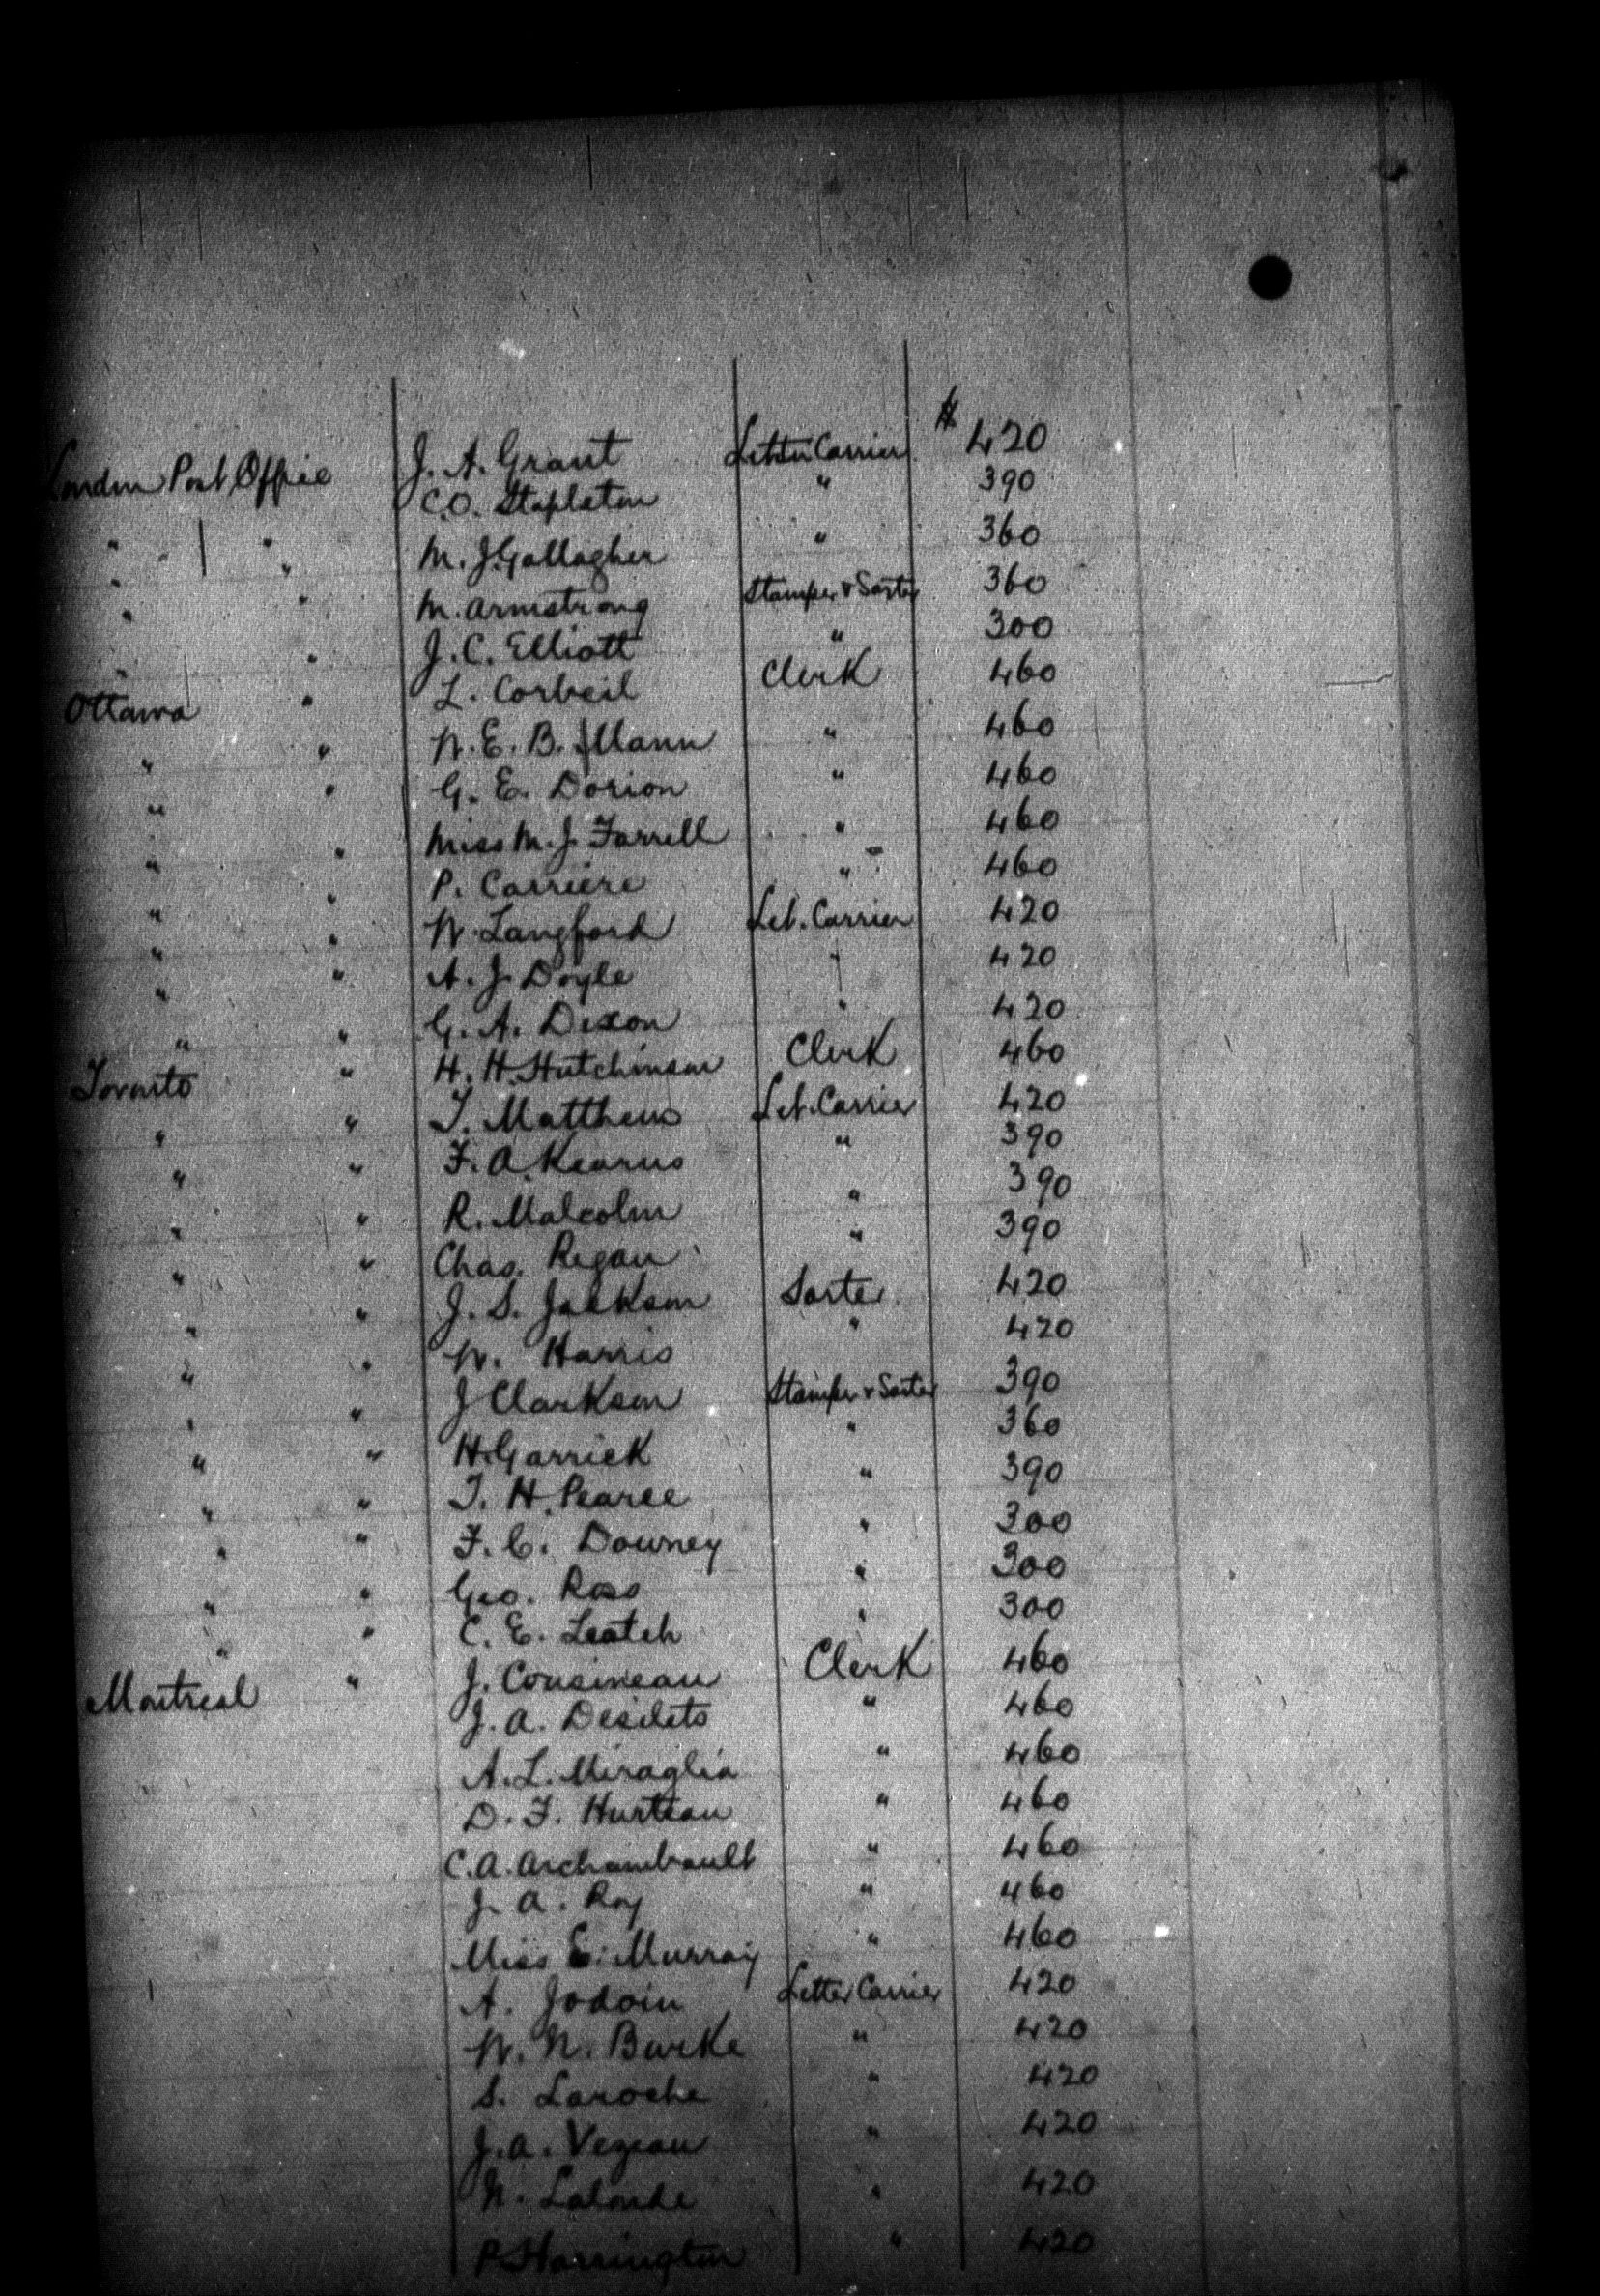 London Post Office J. A. Grant Letter Carrier $ 420
" " C.O. Stapleton " 390
" " M. J. Gallagher " 360
" " M. Armstrong Stamper & Sorter 360
" " J. C. Elliott " 300
Ottawa " L. Corbeil Clerk 460
" " W. E. B. Mann " 460
" " G. E. Dorion " 460
" " Miss M. J. Farrell " 460
" " P. Carriere " 460
" " W. Langford Let. Carrier 420
" " A. J. Doyle " 420
" " G. A. Dixon " 420
Toronto " H. H. Hutchinson Clerk 460
" " T. Matthews Let. Carrier 420
" " F. A. Kearns " 390
" " R. Malcolm " 390
" " Chas. Regan " 390
" " J. S. Jackson Sorter 420
" " W. Harris " 420
" " J Clarkson Stamper & Sorter 390
" " H. Garrick " 360
" " T. H. Pearce " 390
" " F. C. Downey " 300
" " Geo. Ross " 300
" " C. E. Leatch " 300
Montreal " J. Cousineau Clerk 460
J. A. Desilets " 460
A. L. Miraglia " 460
D. F. Hurteau " 460
C. A. Archambault " 460
J. A. Roy " 460
Miss E. Murray " 460
A. Jodoin Letter Carrier 420
W. N. Burke " 420
S. Laroche " 420
J. A. Vezeau " 420
N. Lalonde " 420
P. Harrington " 420